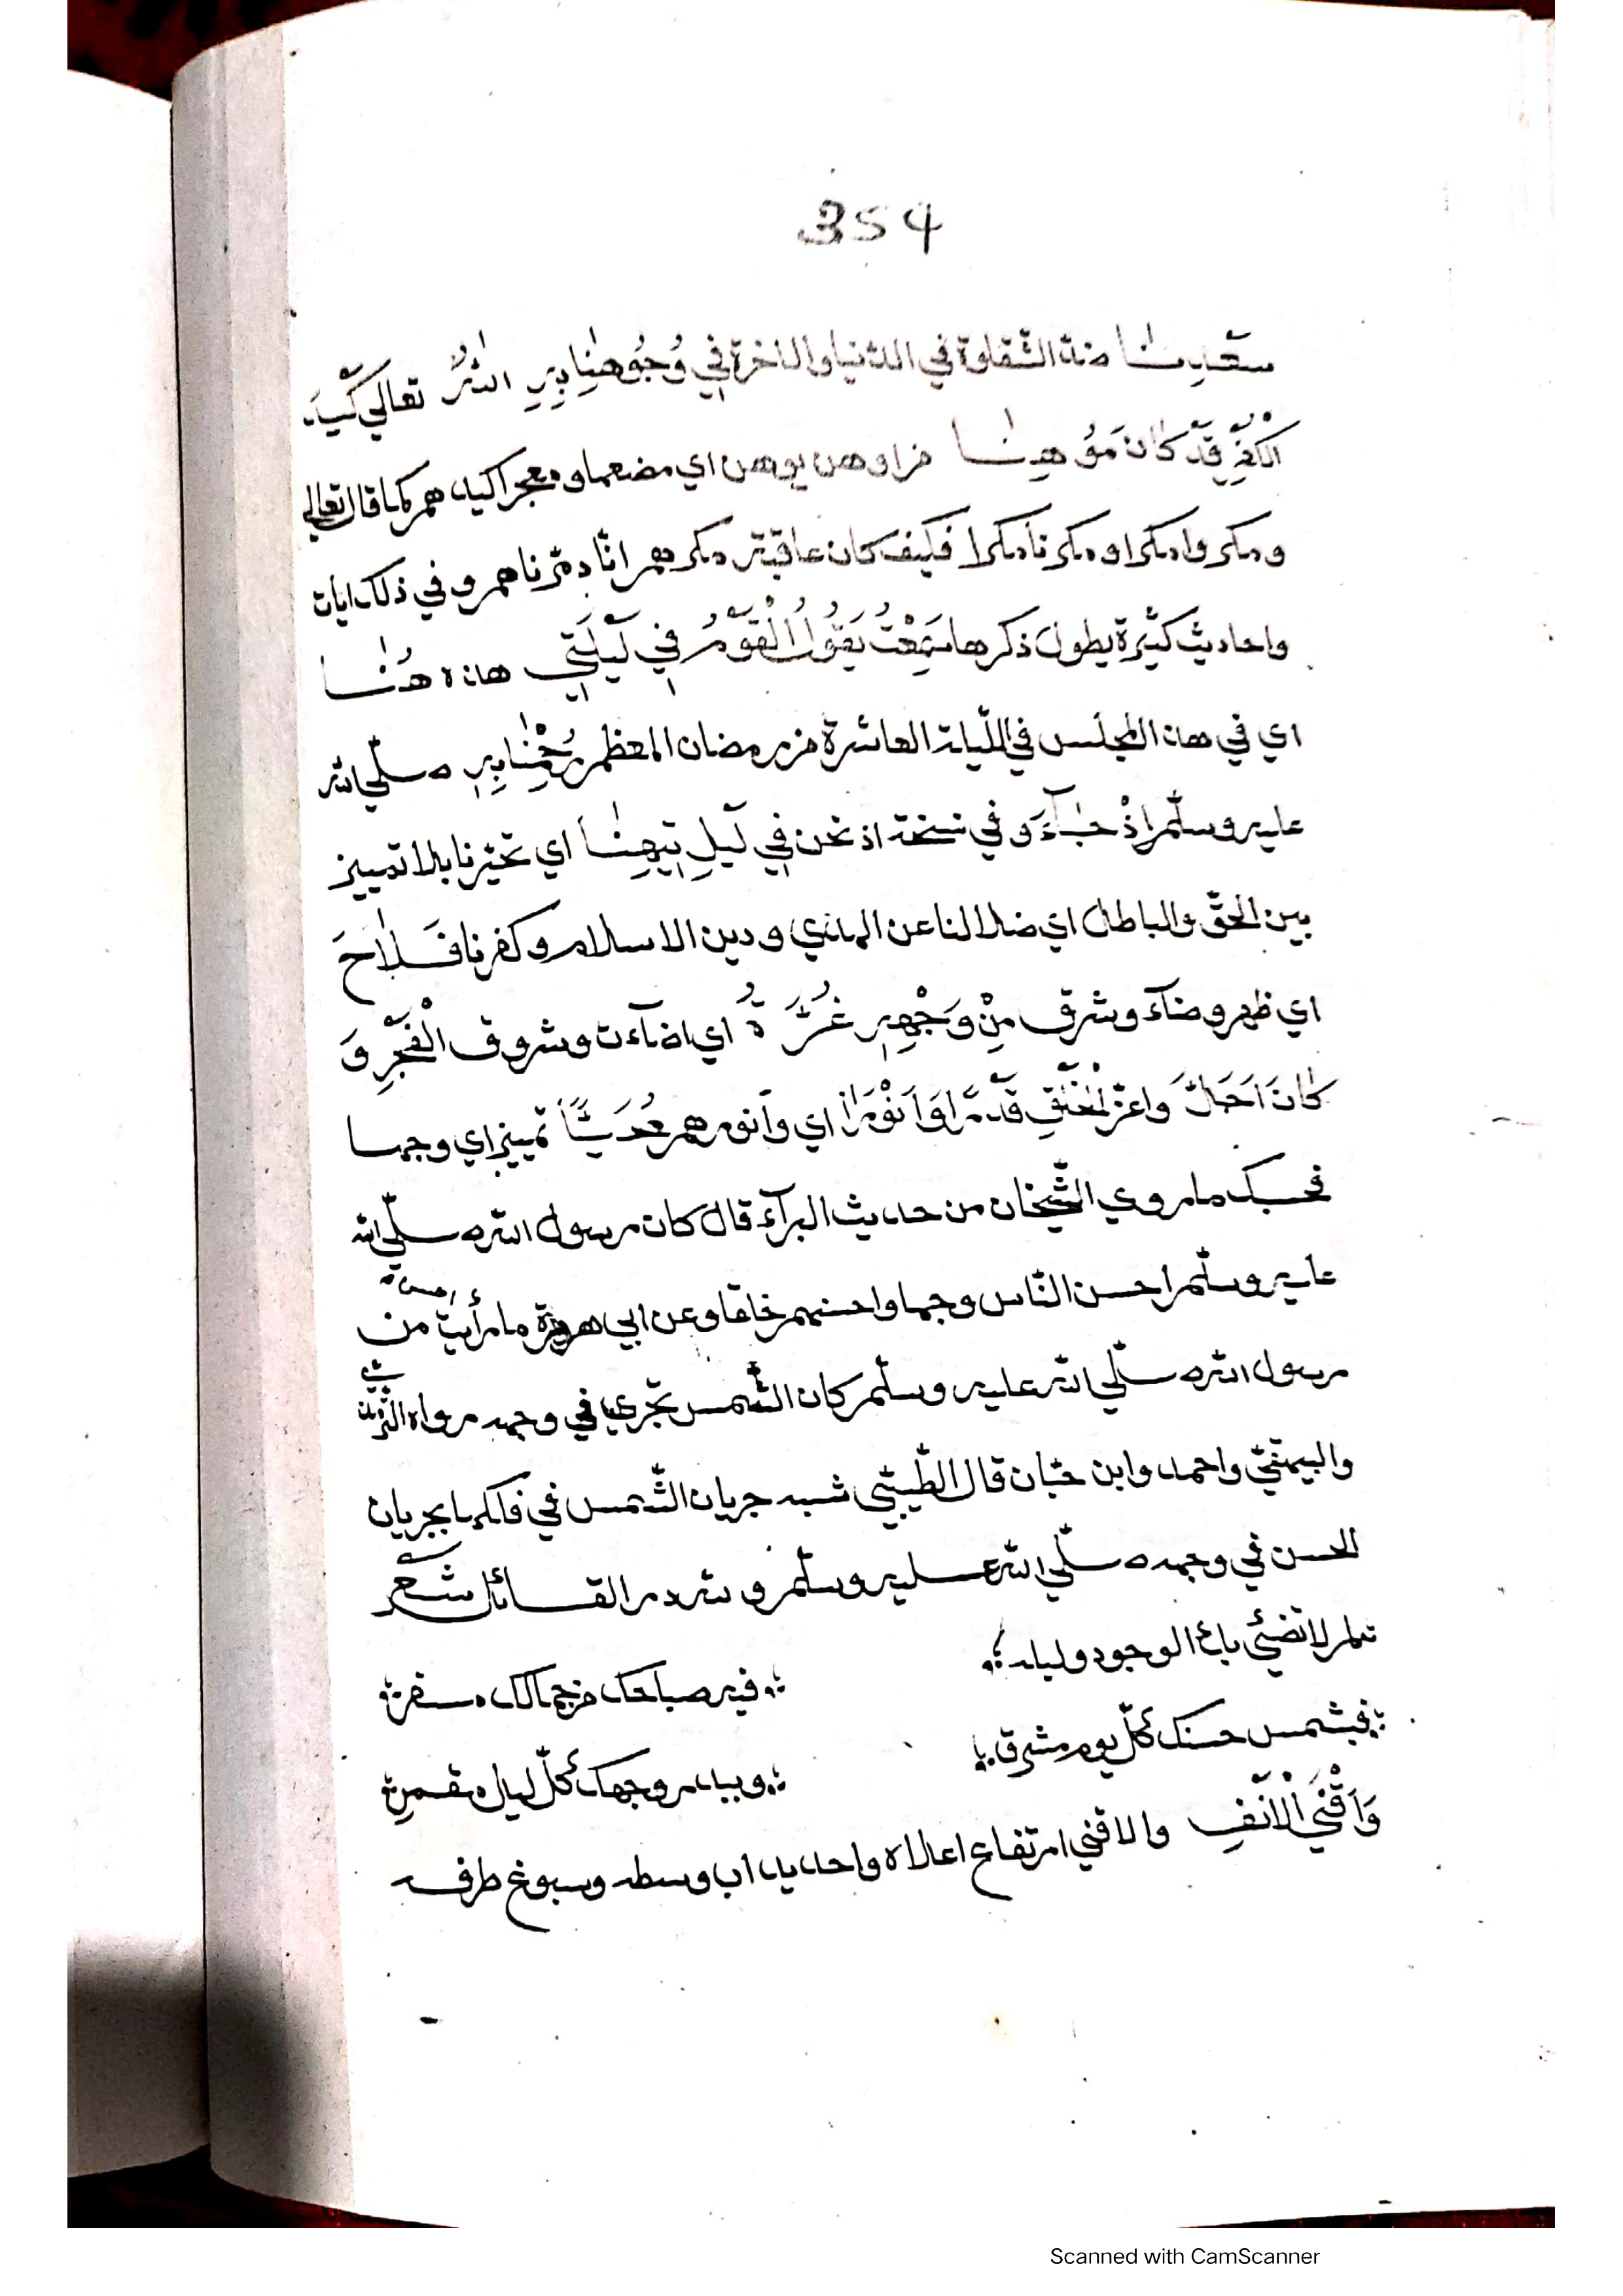 354
سَعِدْنَا ضد الشقاوة في الدنيا والاخرة في وُجُوهِنَا بِهِ اللهُ تعالي كَيْدَ
الْكُفْرِ قَدْ كَانَ مُوْهِنَا من اوهن يوهن اي مضعفا ومعجزا كيدهم كما قال تعالي
ومكروا مكرا ومكرنا مكرا فكيف كان عاقبة مكرهم انّا دمّرناهم وفي ذلك ايات
واحاديث كثيرة يطول ذكرها سَمِعْتُ يَقُولُ الْقَوْمُ فِي لَيْلَتِي هذه هُنَا
اي في هذا المجلس في اللّيلة العاشرة من رمضان المعظم رُحْنَا بِهِ صلّي الله
عليه وسلّم إذْ جَآءَ وفي نسخة اذ نحن فِي لَيْلِ تِيهِنَا اي تحيّرنا بلا تمييز
بين الحقّ والباطل اي ضلالنا عن الهدي ودين الاسلام وكفرنا فَلَاحَ
اي ظهر وضآء وشرق مِنْ وَجْهِهِ غُرَّةُ اي اضآءت وشروق الْفَجْرِ وَ
كَانَ اَجَلَّ وَاعزّ الْخَلْقِ قَدْرًا وَاَنْوَرَا اي وأنورهم مُحَيًّا تمييز اي وجها
فحسبك ما روي الشّيخان من حديث البرآء قال كان رسول الله صلّي الله
عليه وسلّم احسن النّاس وجها واحسنهم خلقا وعن ابي هريرة ما رأيت احسن من
رسول الله صلّي الله عليه وسلّم كان الشّمس تجري في وجهه رواه التّرمذي
والبيهقيّ واحمد وابن حبّان قال الطّيبّي شبه جريان الشّمس في فلكها بجريان
الحسن في وجهه صلّي الله عليه وسلّم ولله در القائل شعر
لم لا تضئي بك الوجود وليله
فيه صباحك من جمالك مسفر
فبشمس حسنك كلّ يوم مشرق
وببدر وجهك كلّ ليل مقمر
وَاَقْنَي الْاَنْفِ والاقني ارتفاع اعلاه واحديداب وسطه وسبوغ طرفه
Scanned with CamScanner